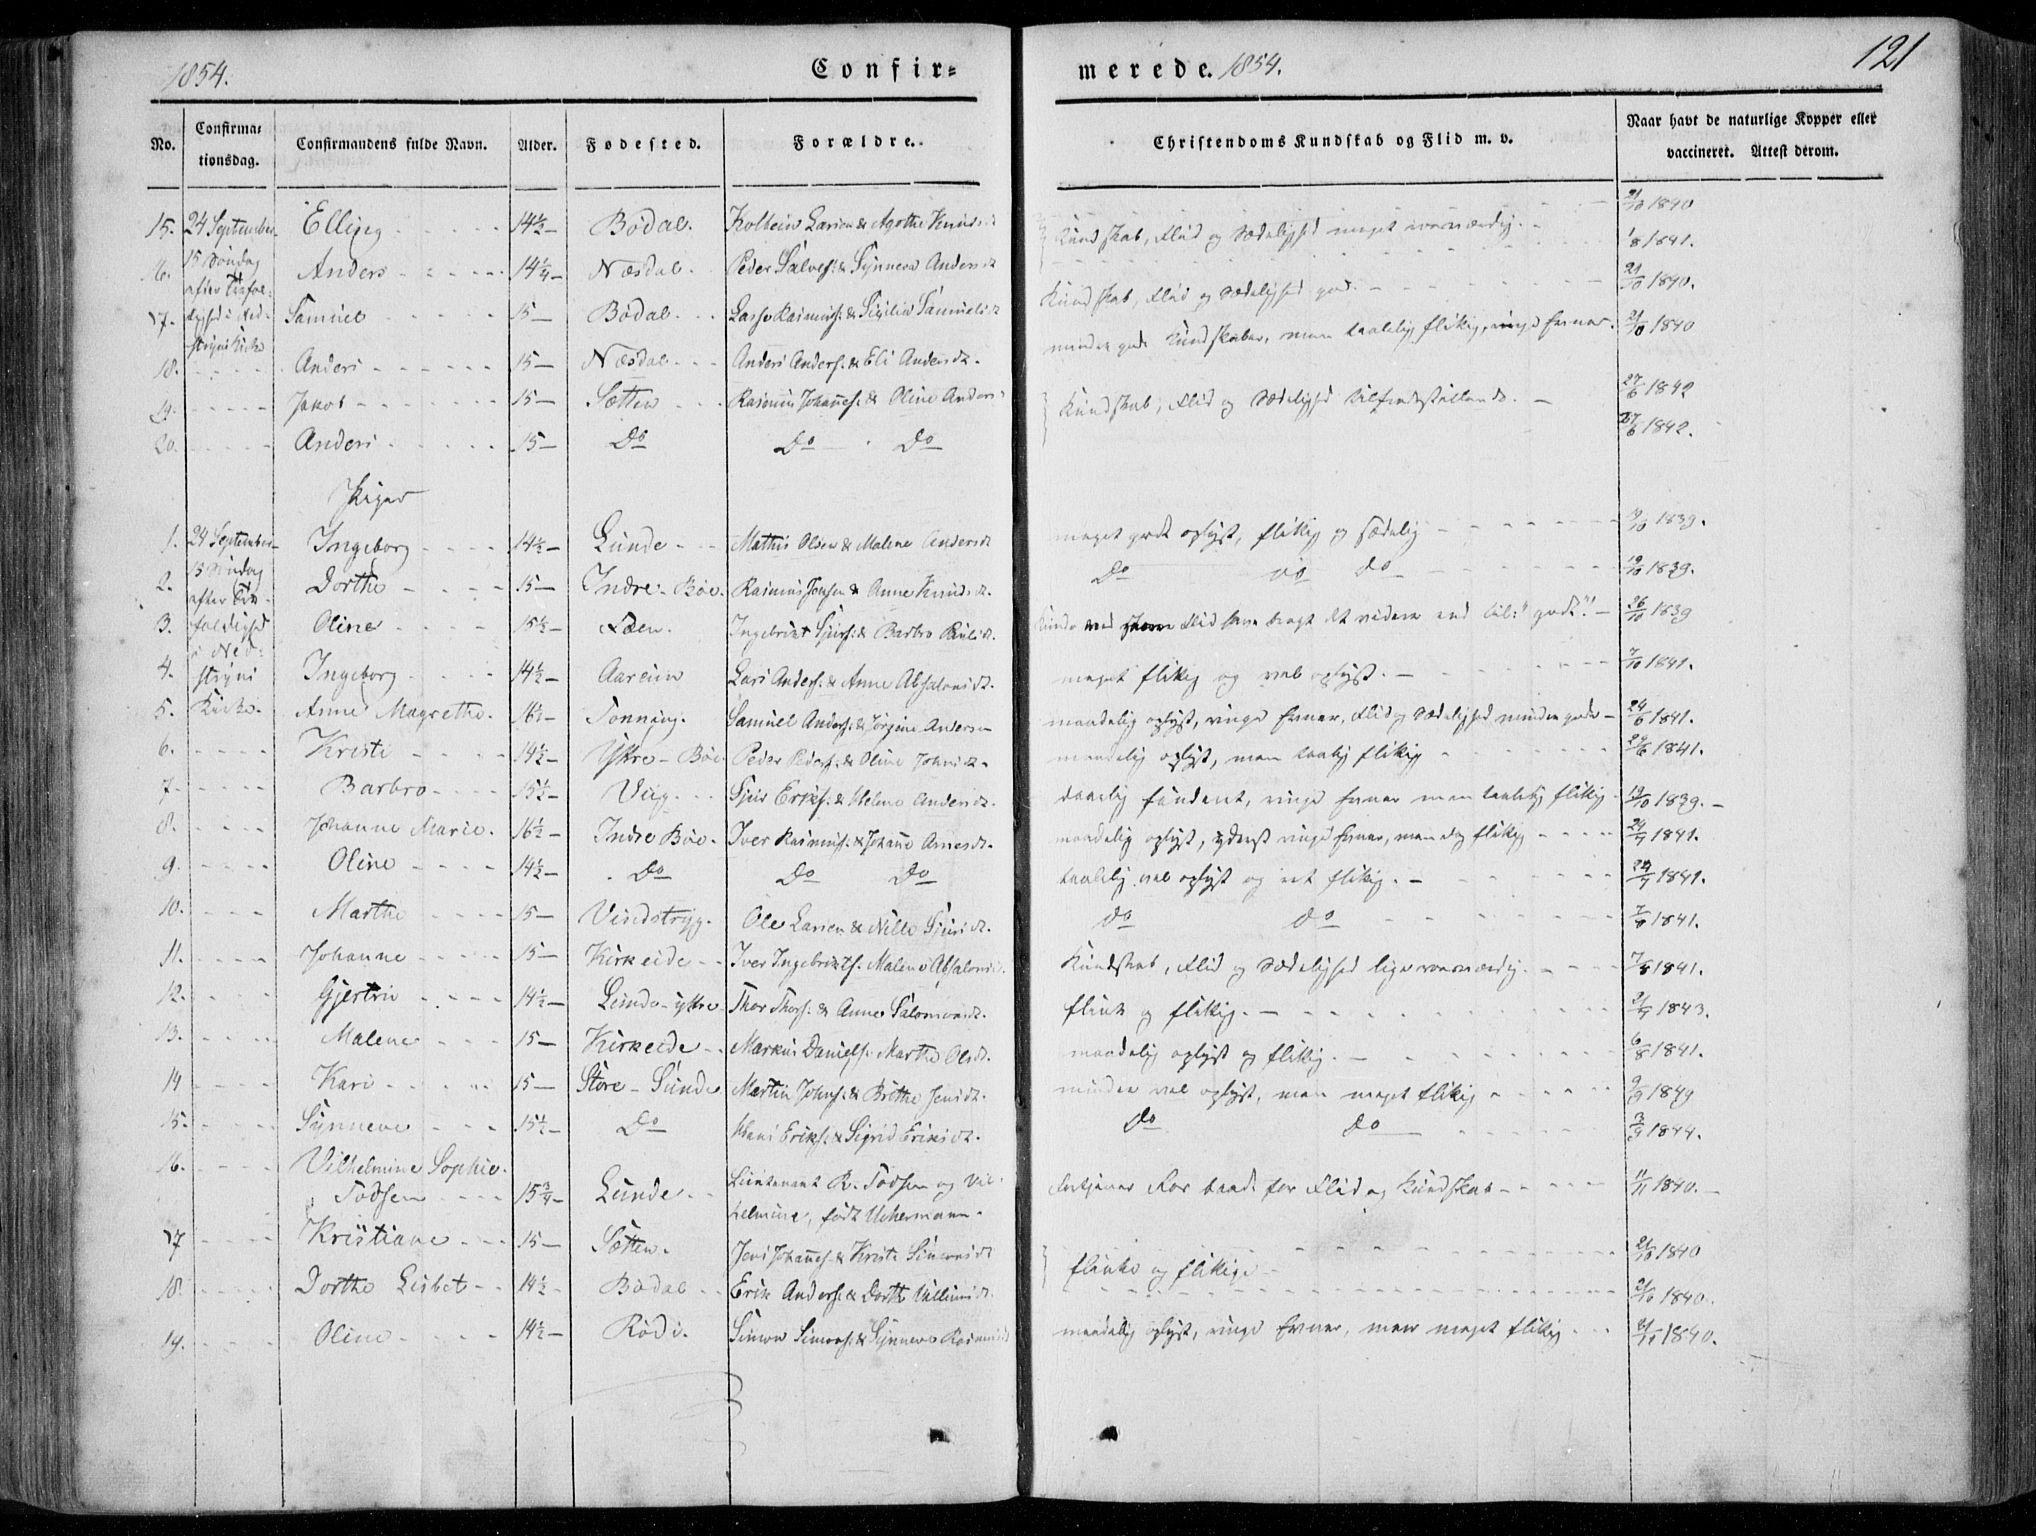 1854.
Confir=
merede. 1854.
121
No.
Confirma=
tionsdag.
Confirmandens fulde Navn.
Alder.
Fødested.
Forældre.
Christendoms Kundskab og Flid m. v.
Naar havt de naturlige Kopper eller
vaccineret. Attest derom.
15. 24 September Elling 14½ Bødal. Kolbein Larsen & Agathe Knuds 21/10 1840
Kundskab, Flid og Sædelighed meget roesværdig.
15 Søndag
16. Anders 14¼ Næsdal. Peder Salves: & Synneva Andersdt 1/8 1841.
efter Trefol=
dighed i Ned=
17. Samuel 15 Bødal Lasse Rasmus: & Sicilia Samuelsdt Kundskab, Flid og Sædelighed god. 21/10 1840.
stryns Kirke
18. Anders 15 Næsdal Anders Anders: & Eli Andersdt. mindre gode Kundskaber, men taalelig flittig, ringe Evner. 21/10 1840
19. Jakob 15 Sætten Rasmus Johanes: & Oline Anders 27/6 1842
Kundskab, Flid og Sædelighed tilfredsstillende.
20. Anders 15 Do Do Do 27/6 1842.
Piger
1. 24 September Ingeborg 14½ Lunde Mathis Olsen & Malene Andersdt meget godt oplyst, flittig og sædelig 1839.
15 Søndag
2. Dorthe 15 Indre-Böe. Rasmus Jensen & Anne Knudsdt. Do do do 19/10 1839.
efter Tre=
3. foldighed Oline 15½ Læen. Ingebrigt Sjurs: & Barbro Pauls dt. kunde med Flid have bragt det videre end til: "godt." 26/10 1839
i Ned=
4. stryns Ingeborg 14½ Aareim Lars Anders: & Anne Absalonsdt. meget flittig og vel oplyst. 7/10 1841.
5. Kirke. Anne Magrethe. 16½ Tonning. Samuel Anders: & Jørgine Anders maadelig oplyst, ringe Evner, Flid og Sædelighed mindre gode 24/6 1841.
6. Kristi 14½ Yttre-Böe Peder Peders: & Oline Johnsdt. maadelig oplyst, men taalig flittig 24/6 1841.
7. Barbro 15½ Vug. Sjur Eriks: & Helene Andersdt. daarlig funderet, ringe Evner men taalelig flittig 19/10 1839.
8. Johanne Marie. 16½ Indre Böe. Iver Rasmus: & Johane Arnesdt. maadelig oplyst, yderst ringe Evner, men dog flittig 24/4 1841.
9. Oline 14½ Do Do Do taalelig vel oplyst og ret flittig. 24/4 1841.
10. Marthe 15 Vindstryg. Ole Larsen & Nille Sjursdt. do do 7/8 1841.
11. Johanne 15 Kirkeide Iver Ingebrigts. Malene Absalons Kundskab, Flid og Sædelighed lige roesværdig. 7/8 1841.
12. Gjertru 14½ Lunde-yttre. Thor Thors: & Anne Salomonsdt. flink og flittig. 21/4 1843.
13. Malene 15 Kirkeide Markus Daniels: Marthe Olsdt. maadelig oplyst og flittig. 6/8 1841.
14 Kari 15 Store-Sunde Martin Johns: & Brithe Jensdt. mindre vel oplyst, men meget flittig 9/9 1849
15. Synneve 15½ Do Hans Eriks: & Sigrid Eriksdt. Do do 3/9 1844.
16. Vilhelmine Sophie.
Todsen 15¾ Lunde Lieutenant R. Todsen og Vil= Fortjener Roes baade for Flid og Kundskab 11/11 1840.
helmine, født Uchermann.
17 Kristiane 15 Sætten. Jens Johanes: & Kristi Simonsdt 21/10 1840
flinke og flittige
18. Dorthe Lisbet 14½ Bødal Erik Anders: & Dorthe Villumsdt. 21/10 1840.
19. Oline 14½ Rødi. Simon Simons: & Synneve Rasmusdt maadelig oplyst, ringe Evner, men meget flittig 1840.